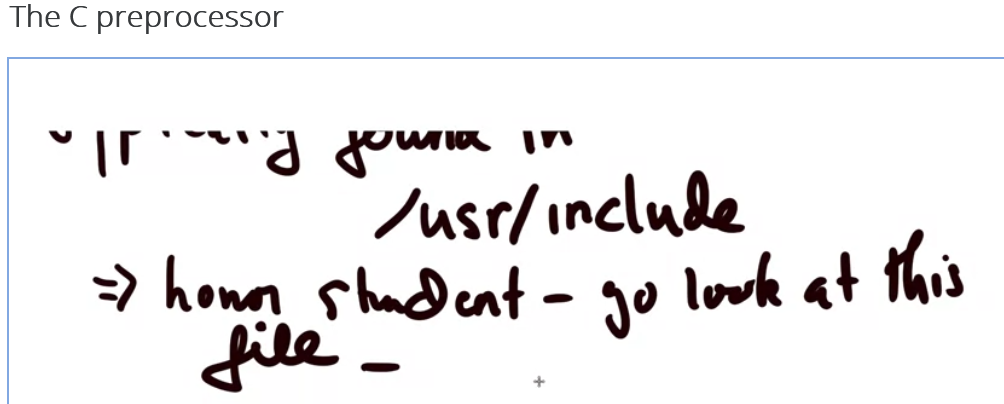 The C preprocessor
found in
/usr/include
=> honor student - go look at this
file -